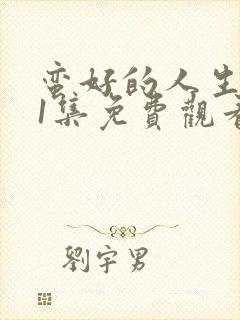 蛮好的人生
1集免費觀看
劉宇男